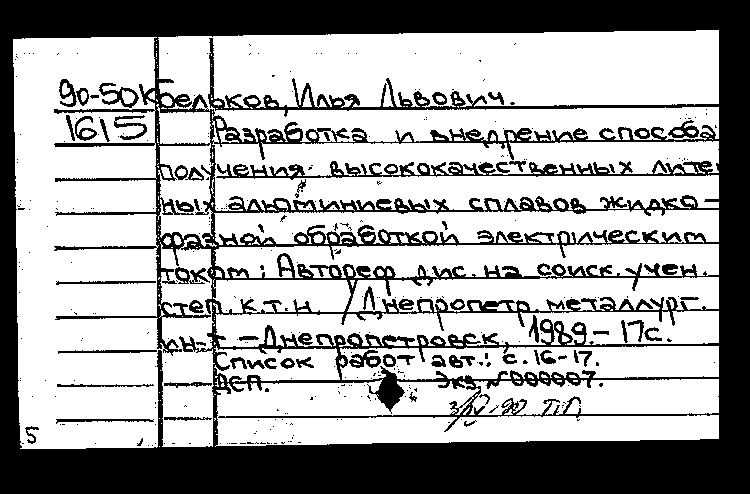 90-50К Бельков, Илья Львович.
1615 Разработка и внедрение способа
получения высококачественных литей
ных алюминиевых сплавов жидко-
фазной обработкой электрическим
током: Автореф. дис. на соиск. учен.
степ. к.т.н. / Днепропетр. металлург.
ин-т. - Днепропетровск, 1989. - 17с.
Список работ авт.: с. 16-17.
ДСП. Экз. №000007.
5